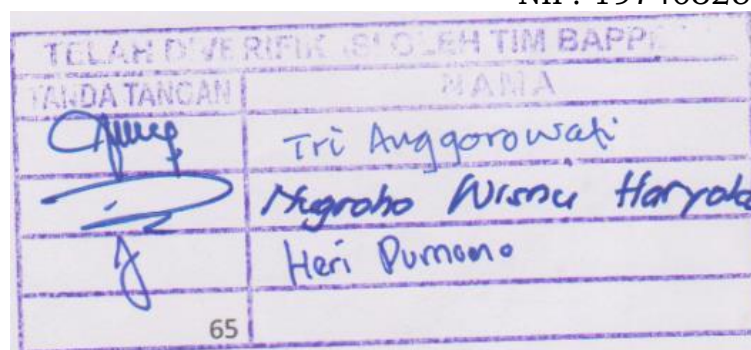 TELAH DIVERIFIKASI OLEH TIM BAPPE
TANDA TANGAN NAMA
Tri Anggorowati
Nugroho Wisnu Haryoko
Heri Purnomo
65